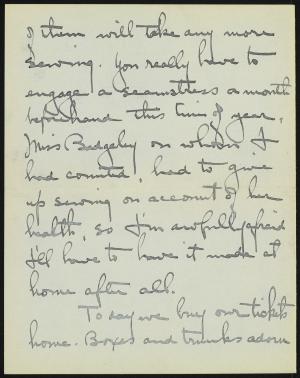 of them will take any more
sewing. You really have to
engage a seamstress a month
beforehand this time of year.
Miss Badgeley on whom I
had counted, had to give
up sewing on account of her
health, so I'm awfully afraid
I'll have to have it made at
home after all.
Today we buy our tickets
home. Boxes and trunks adorn